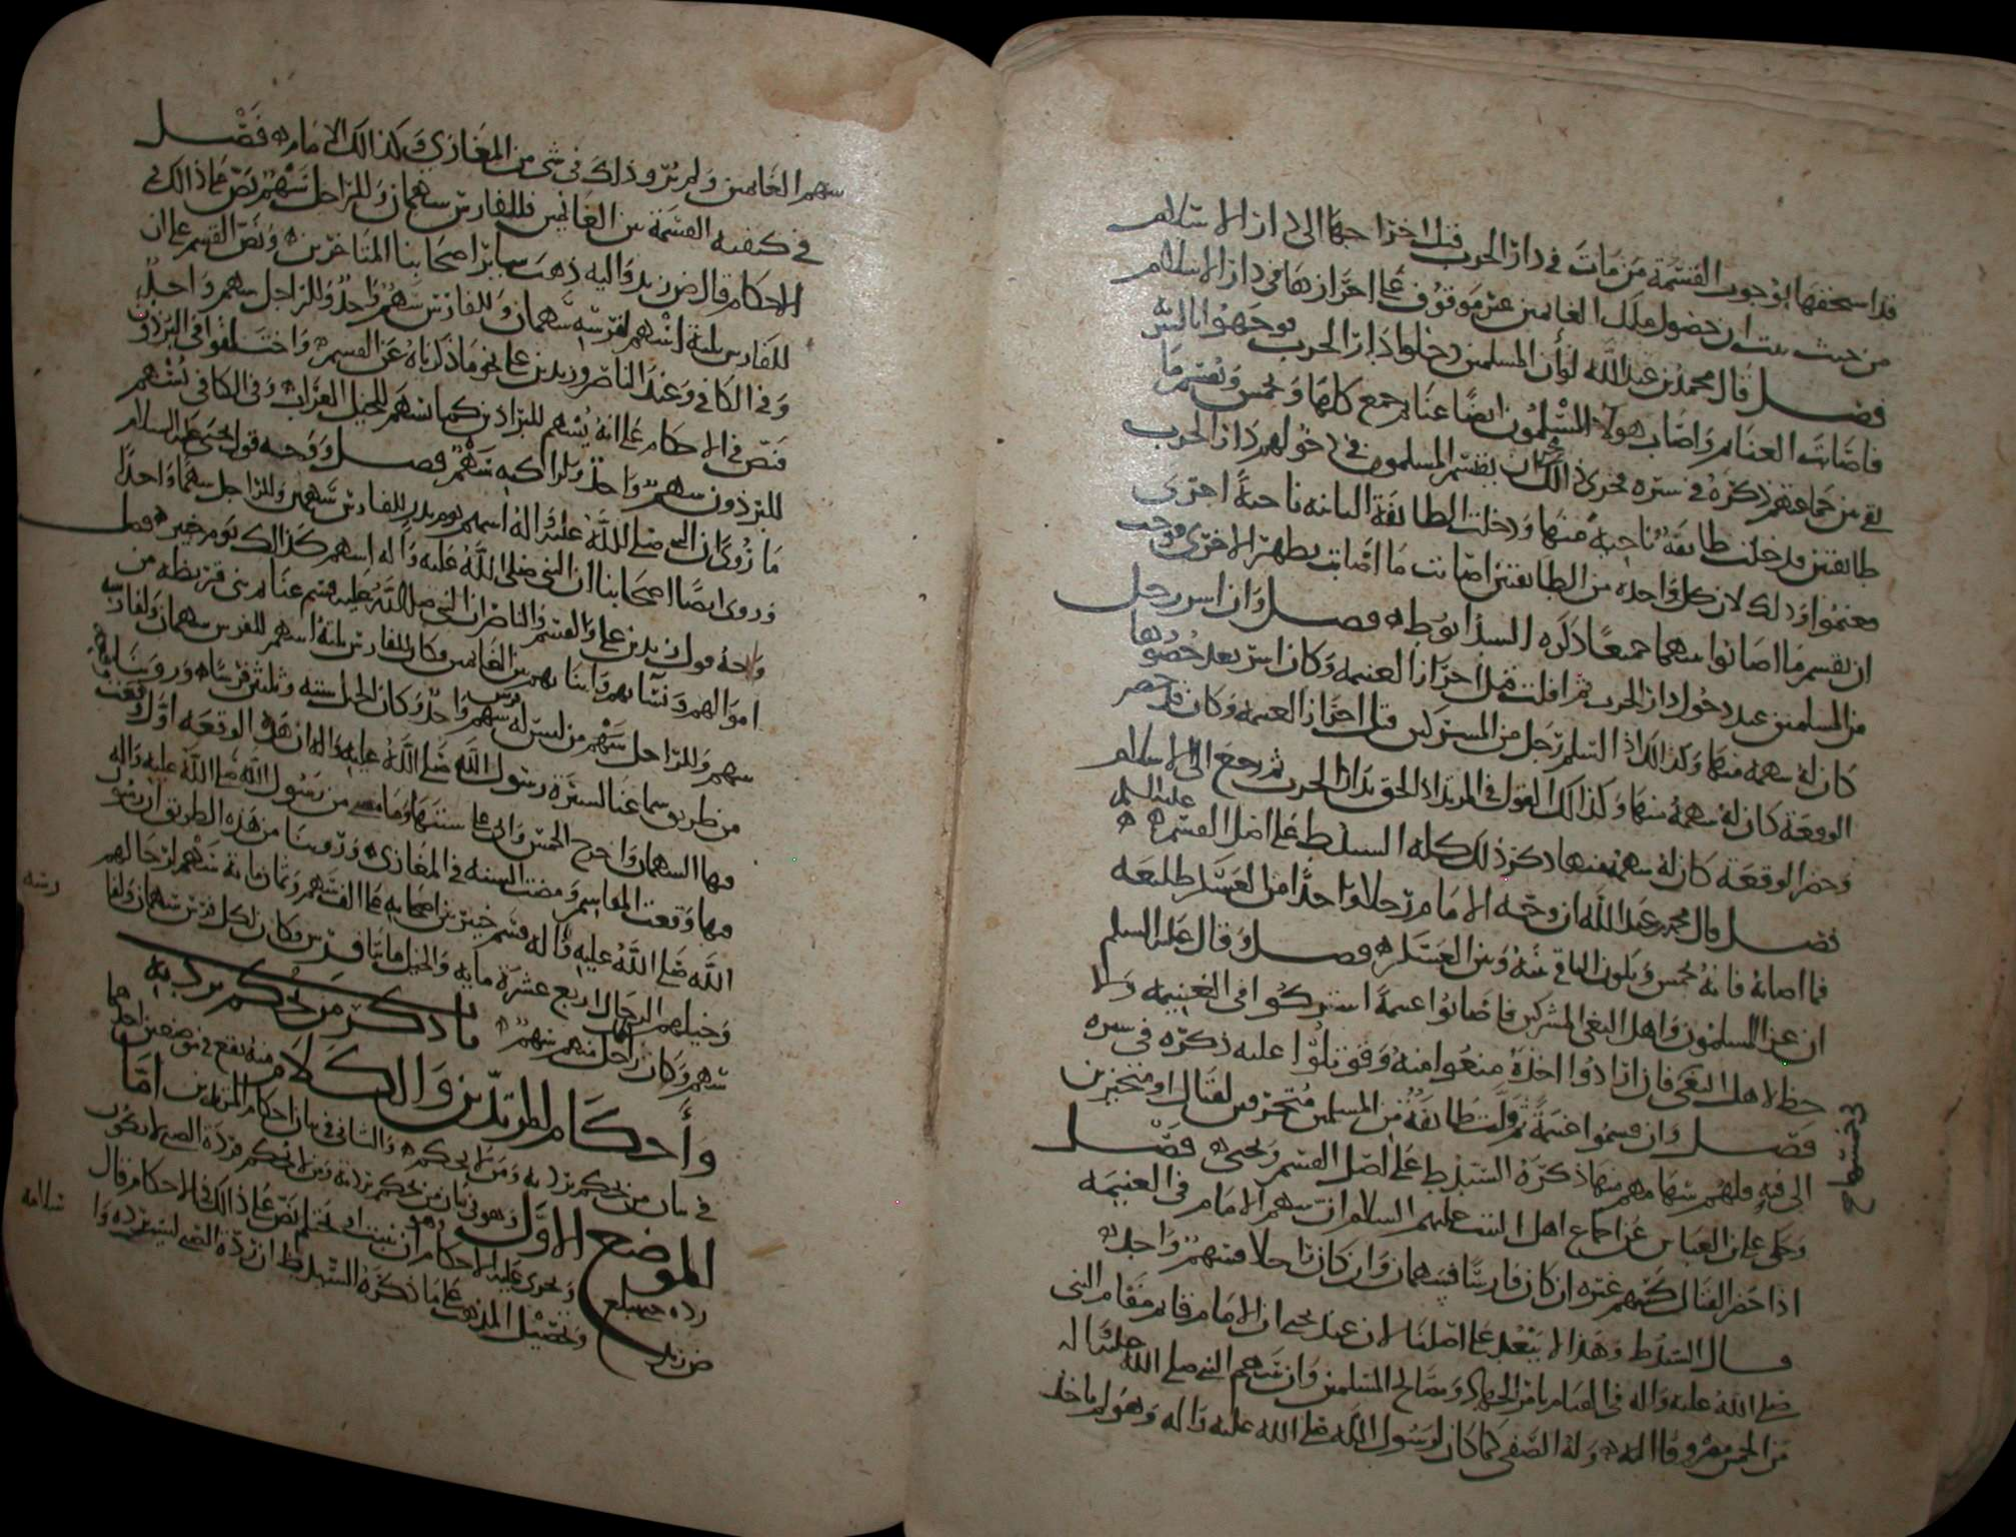 قد استحقها بوجوب القسمة من مات في دار الحرب قبل اخراجها الى دار الاسلام
من حيث ان حصول ملك الغانمين غير موقوف على احرازها في دار الاسلام
فصل قال محمد بن عبد الله لو ان المسلمين دخلوا دار الحرب فوجهوا بالسرية
فاصابت الغنائم واصاب هولاء المسلمون ايضا غنائم جمع كلها وخمس وتقسم ما
بقي بين جماعتهم ذكره في سيره فجرى ذلك مجرى ان يقتسم المسلمون في دخولهم دار الحرب
طائفتين فدخلت طائفة ناحية منها ودخلت الطائفة الثانية ناحية اخرى
فغنموا وذلك لان كل واحدة من الطائفتين اصابت ما اصابت بظهر الاخرى فوجب
ان يقسم ما اصابوا بينهما جميعا ذكره السيد ابو ط فصل وان اسر رجل
من المسلمين عند دخول دار الحرب ثم افلت قبل احراز الغنيمة وكان اسر بعد حضورها
كان له سهمه منها وكذلك اذا اسلم رجل من المشركين قبل احراز الغنيمة وكان قد حضر
الوقعة كان له سهمه منها وكذلك القول في المرتد اذا لحق بدار الحرب ثم رجع الى الاسلام
وحضر الوقعة كان له سهمه منها ذكر ذلك كله السيد ط على اصل القسم عليه السلم
فصل قال محمد بن عبد الله ان وجه الامام رجلا واحدا من العسكر طليعة
فما اصابه فانه يخمس ويكون الباقي بينه وبين العسكر فصل وقال عليه السلم
ان غزا المسلمون واهل البغي المشركين فاصابوا غنيمة اشتركوا في الغنيمة ولا
حظ لاهل البغي فان ارادوا اخذه منعوا منه وقوتلوا عليه ذكره في سيره
فصل وان قسموا غنيمة ثم ولت طائفة من المسلمين متحرفين لقتال او متحيزين
الى فئة فلهم سهامهم منها ذكره السيد ط على اصل القسم ويحيى فصل
وحكى علي بن العباس عن اجماع اهل البيت عليهم السلام ان سهم الامام في الغنيمة
اذا حضر القتال كسهم غيره ان كان فارسا فسهمان وان كان راجلا فسهم واحد
قال السيد ط وهذا لا يبعد على اصلنا لان عند يحيى ان الامام قائم مقام النبي
صلى الله عليه واله في القيام بامر الجهاد ومصالح المسلمين وان سهم النبي صلى الله عليه واله
من الخمس مصروف اليه وله الصفي كما كان لرسول الله صلى الله عليه واله وهو لم ياخذ
سهم الغانمين ولم يرو ذلك في شي من المغازي وكذلك الامام فصل
في كيفية القسمة بين الغانمين فللفارس سهمان وللراجل سهم نص على ذلك في
الاحكام قال ض زيد واليه ذهب سائر اصحابنا المتاخرين ونص القسم على ان
للفارس ثلثة اسهم لفرسه سهمان وللفارس سهم واحد وللراجل سهم واحد
وفي الكافي وعند الناصر وزيد بن علي نحو ما ذكرناه عن القسم واختلفوا في البرذون
فنص في الاحكام على انه يسهم للبراذين كما يسهم للخيل العراب وفي الكافي يسهم
للبرذون سهم واحد ولراكبه سهم فصل ووجه قول يحيى عليه السلام
ما روي ان النبي صلى الله عليه واله اسهم يوم بدر للفارس سهمين وللراجل سهما واحدا
وروى ايضا اصحابنا ان النبي صلى الله عليه واله اسهم كذلك يوم خيبر فصل
وجه قول زيد بن علي والقسم والناصر ان النبي صلى الله عليه قسم غنائم بني قريظة من
اموالهم ونسائهم وابنائهم بين الغانمين فكان للفارس ثلثة اسهم للفرس سهمان ولفارسه
سهم وللراجل سهم من ليس له فرس سهم واحد وكان الخيل ستة وثلثين فرسا وروينا
من طريق سماعنا لسيرة رسول الله صلى الله عليه واله ان هذه الوقعة اول وقعت
فيها السهمان واخرج الخمس وانى على سنتها وما مضى من رسول الله صلى الله عليه واله
فيها وقعت المقاسم ومضت السنة في المغازي وروينا من هذه الطريق ان رسول
الله صلى الله عليه واله قسم خيبر بين اصحابه على الف سهم وثمان مائة سهم لرجالهم
وخيلهم الرجال اربع عشرة مائة والخيل مائتا فرس فكان لكل فرس سهمان ولفا
رسه
سهم وكان لكل راجل منهم سهم ما ذكر من يحكم بردته
وأحكام المرتدين والكلام منه يقع في موضعين احدهما
في بيان من يحكم بردته ومن لا يحكم والثاني في بيان احكام المرتدين اما
الموضع الاول وهو في بيان من يحكم بردته ومن لا يحكم فردة الصبي لا تكون
ردة حتى يبلغ ويجري عليه الاحكام ان ينبت او يحتلم نص على ذلك في الاحكام قال
ض زيد وتحصيل المذهب على ما ذكره السيد ط ان ردة الصبي ليست بردة وا
سلامه